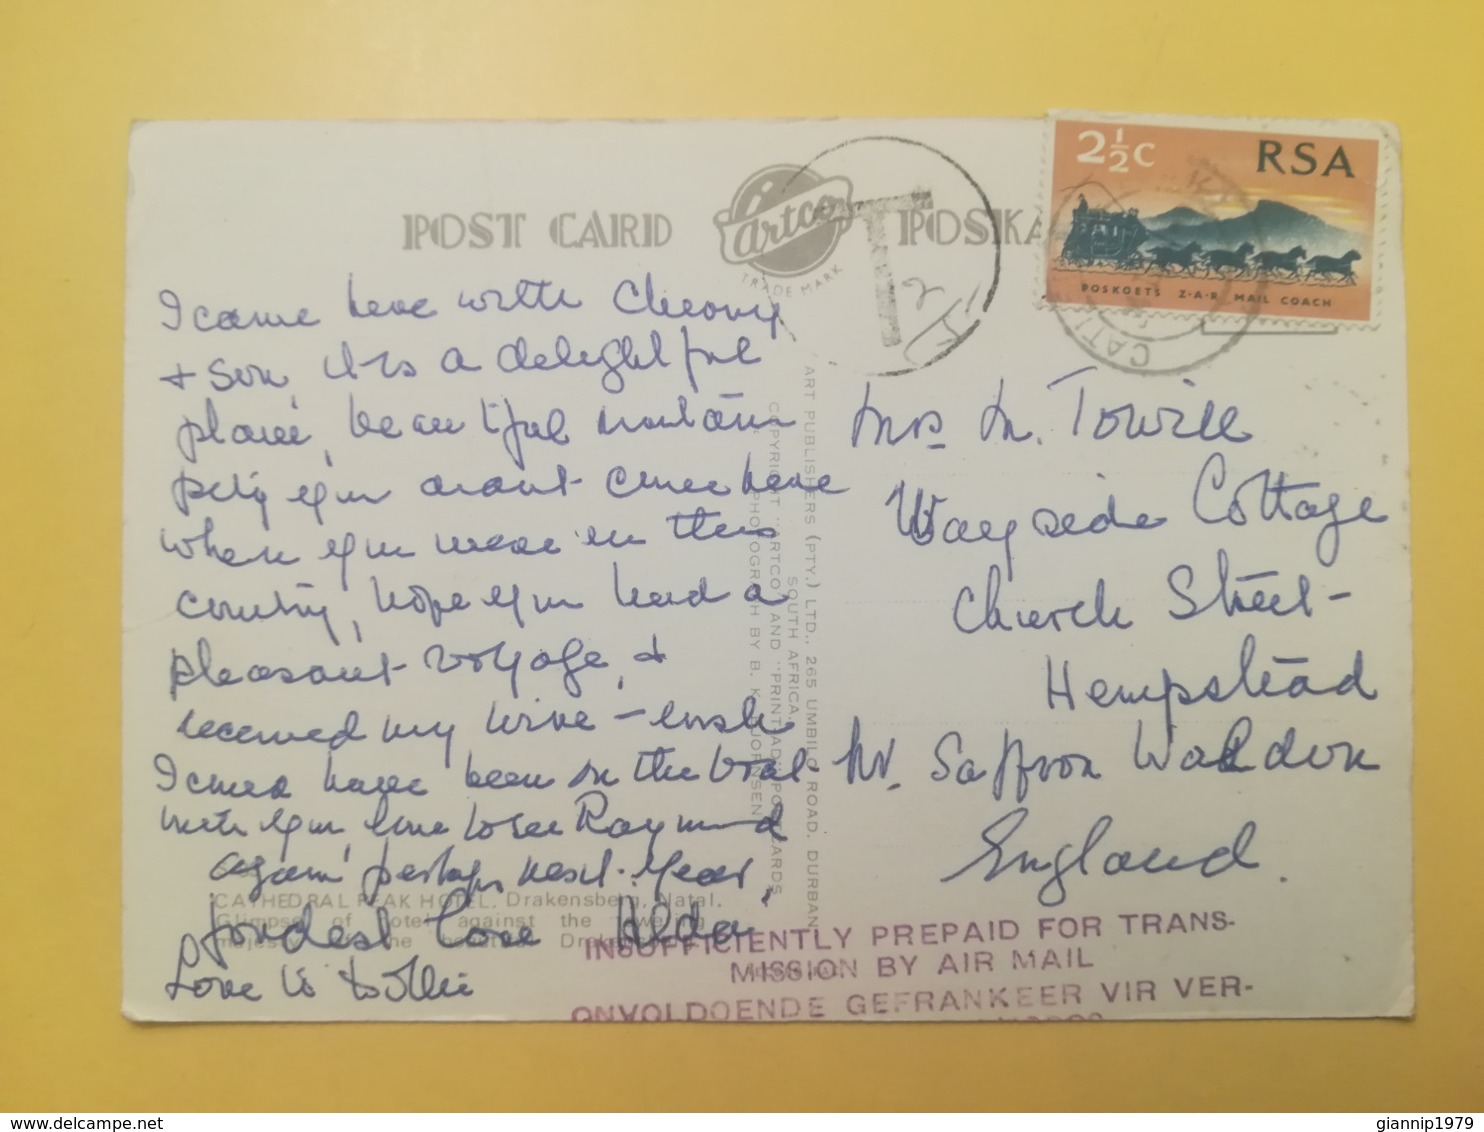 POST CARD
artco
TRADE MARK
POSKA
T
2½c RSA
POSKOETS Z·A·R MAIL COACH
CAT
I came here with
+ Son, it is a delightful
place, beautiful mountain
pity you cannot come here
when you were in this
country, hope you had a
pleasant voyage, +
received my wire - wish
I could have been on the boat
with you, love to see Raymond
again perhaps next year,
fondest love Hilda
Love to Tollie
Mrs M. Towill
Wayside Cottage
Church Street-
Hempstead
Nr. Saffron Walden
England.
ART PUBLISHERS (PTY.) LTD., 265 UMBILO ROAD, DURBAN
SOUTH AFRICA.
COPYRIGHT "ARTCO" AND "PRINTAD" POSTCARDS
PHOTOGRAPH BY B. K. BJORNSEN
CATHEDRAL PEAK HOTEL. Drakensberg, Natal.
Glimpse of hotel against the towering
INSUFFICIENTLY PREPAID FOR TRANS-
MISSION BY AIR MAIL
ONVOLDOENDE GEFRANKEER VIR VER-
giannip1979